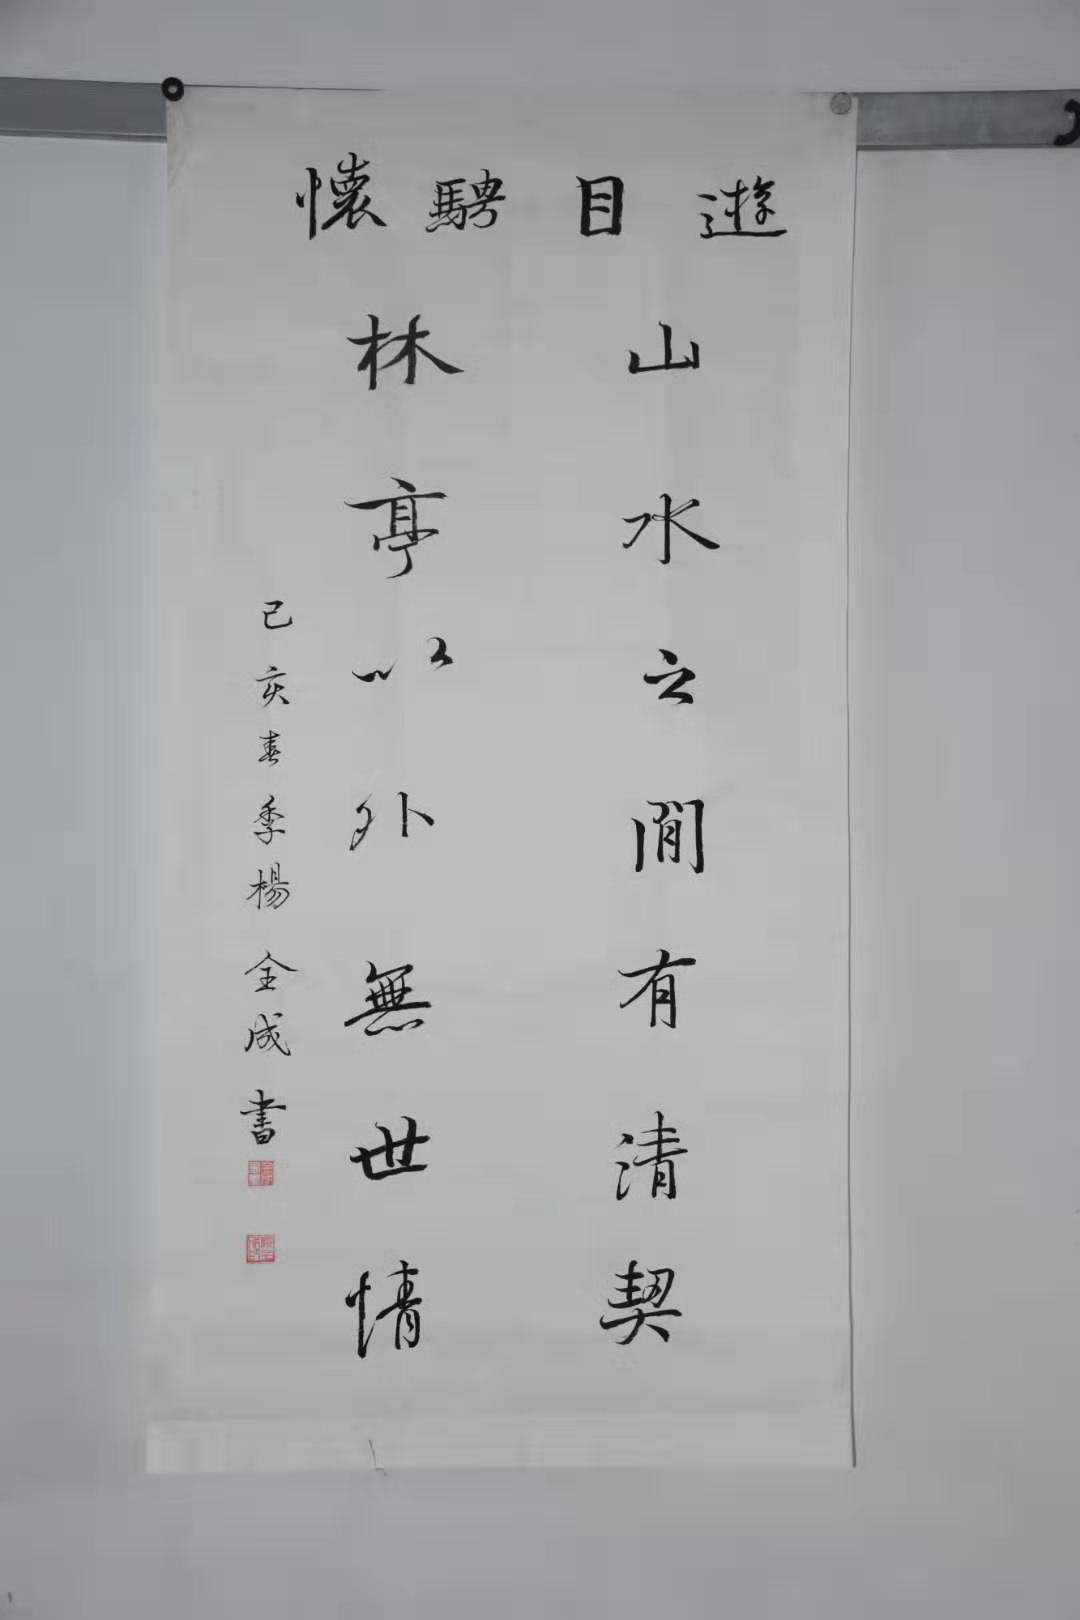 遊目騁懷
山水之間有清契
林亭以外無世情
己亥春季楊全成書